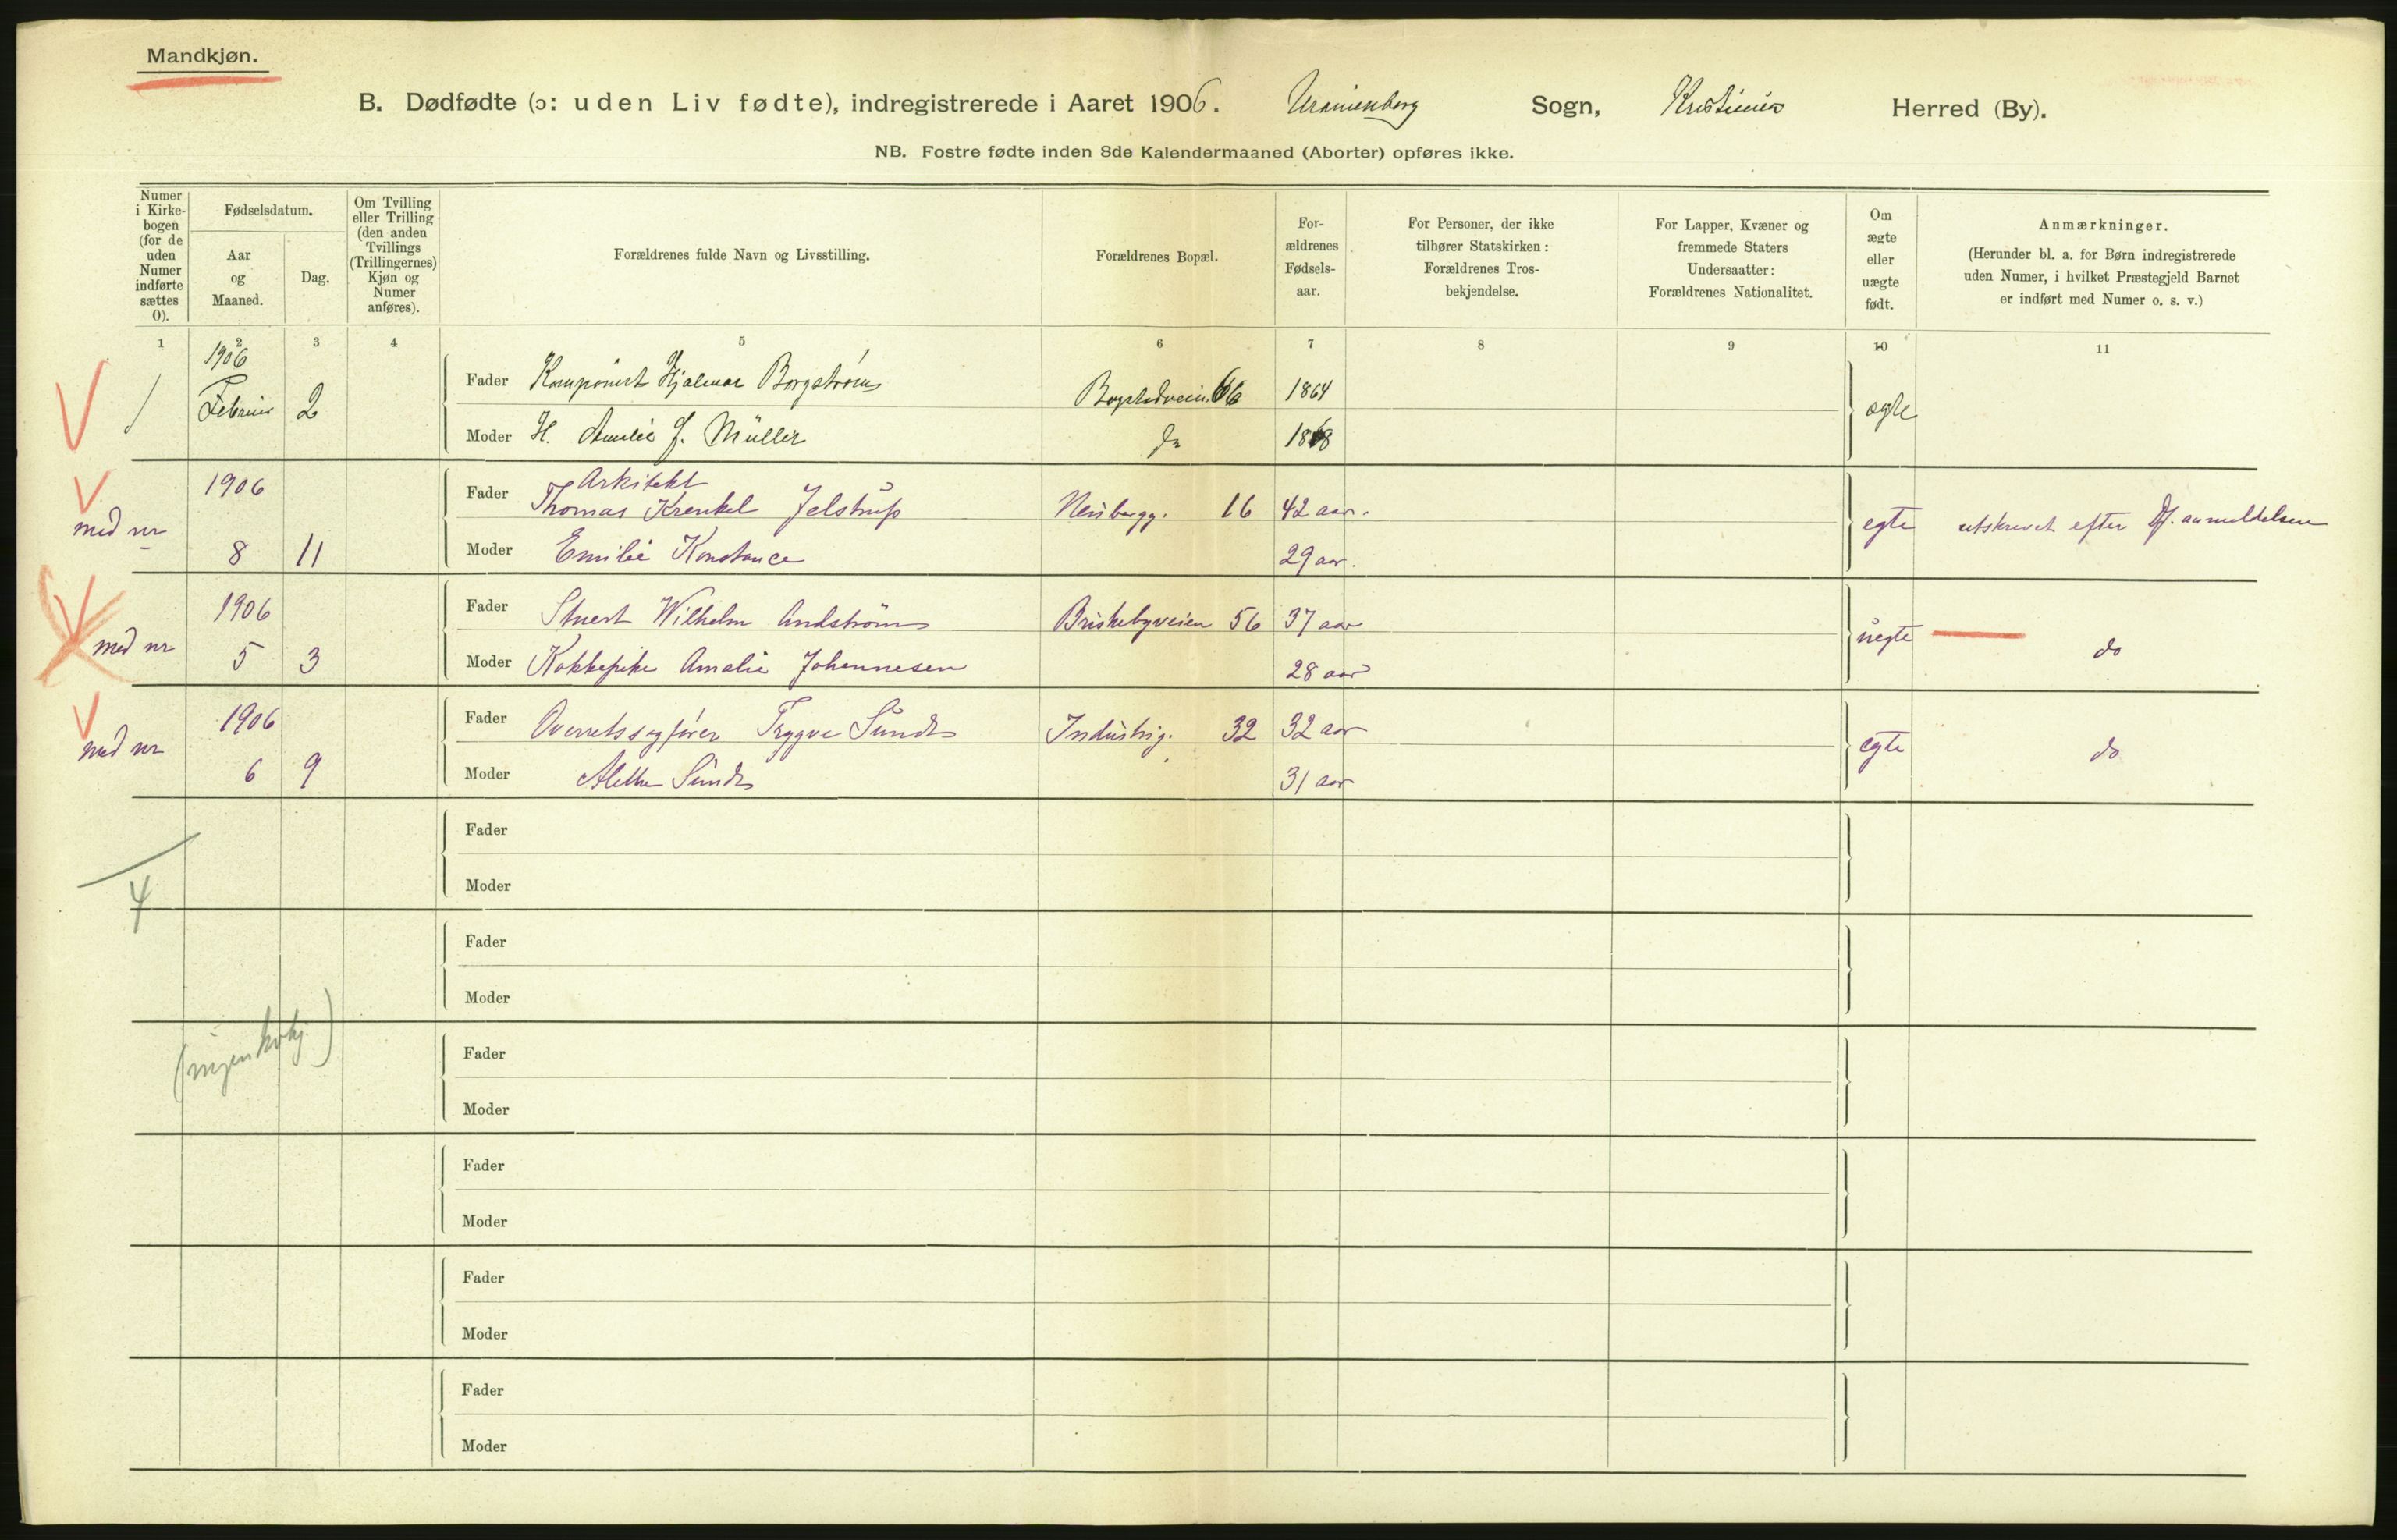 Mandkjøn.
B. Dødfødte (ɔ: uden Liv fødte), indregistrerede i Aaret 1906. Uranienborg Sogn, Kristiania Herred (By).
NB. Fostre fødte inden 8de Kalendermaaned (Aborter) opføres ikke.
Numer
i Kirke-
bogen
(for de
uden
Numer
indførte
sættes
0).
Fødselsdatum.
Aar
og
Maaned.
Dag.
Om Tvilling
eller Trilling
(den anden
Tvillings
(Trillingernes)
Kjøn og
Numer
anføres).
Forældrenes fulde Navn og Livsstilling.
Forældrenes Bopæl.
For-
ældrenes
Fødsels-
aar.
For Personer, der ikke
tilhører Statskirken:
Forældrenes Tros-
bekjendelse.
For Lapper, Kvæner og
fremmede Staters
Undersaatter:
Forældrenes Nationalitet.
Om
ægte
eller
uægte
født.
Anmærkninger.
(Herunder bl. a. for Børn indregistrerede
uden Numer, i hvilket Præstegjeld Barnet
er indført med Numer o. s. v.)
1 2 3 4 5 6 7 8 9 10 11
1906
1 Februar 2
Fader Komponist Hjalmar Borgstrøm Bogstadveien 66 1864
ægte
Moder H. Amalie J. Müller do 1868
1906
Arkitekt
Fader Thomas Krenkel Jelstrup Neubergg. 16 42 aar.
med nr
egte utskrevet efter Df. anmeldelsen
8 11
Moder Emilie Konstance 29 aar.
1906
Fader Stuert Wilhelm Andstrøm Briskebyveien 56 37 aar
med nr
uegte do
5 3
Moder Kokkepike Amalie Johannesen 28 aar
1906
Fader Overretssagfører Trygve Sundt Industrig. 32 32 aar
med nr
egte do
6 9
Moder Alethe Sundt 31 aar
Fader
4
Moder
Fader
Moder
(ingen kvkj.)
Fader
Moder
Fader
Moder
Fader
Moder
Fader
Moder